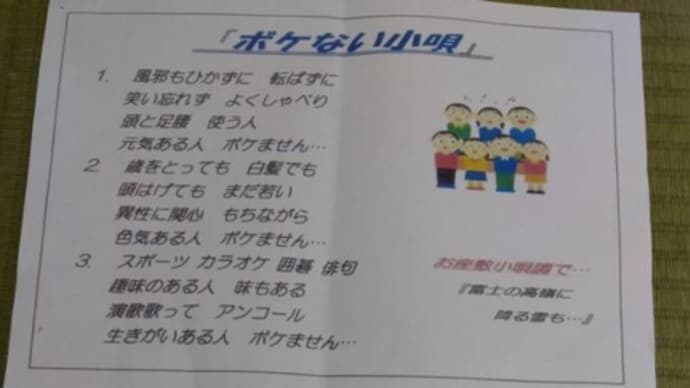 『ボケない小唄』
1. 風邪もひかずに 転ばずに
笑い忘れず よくしゃべり
頭と足腰 使う人
元気ある人 ボケません…
2. 歳をとっても 白髪でも
頭はげても まだ若い
異性に関心 もちながら
色気ある人 ボケません…
3. スポーツ カラオケ 囲碁 俳句
趣味のある人 味もある
演歌歌って アンコール
生きがいある人 ボケません…
お座敷小唄調で…
『富士の高嶺に
降る雪も…』